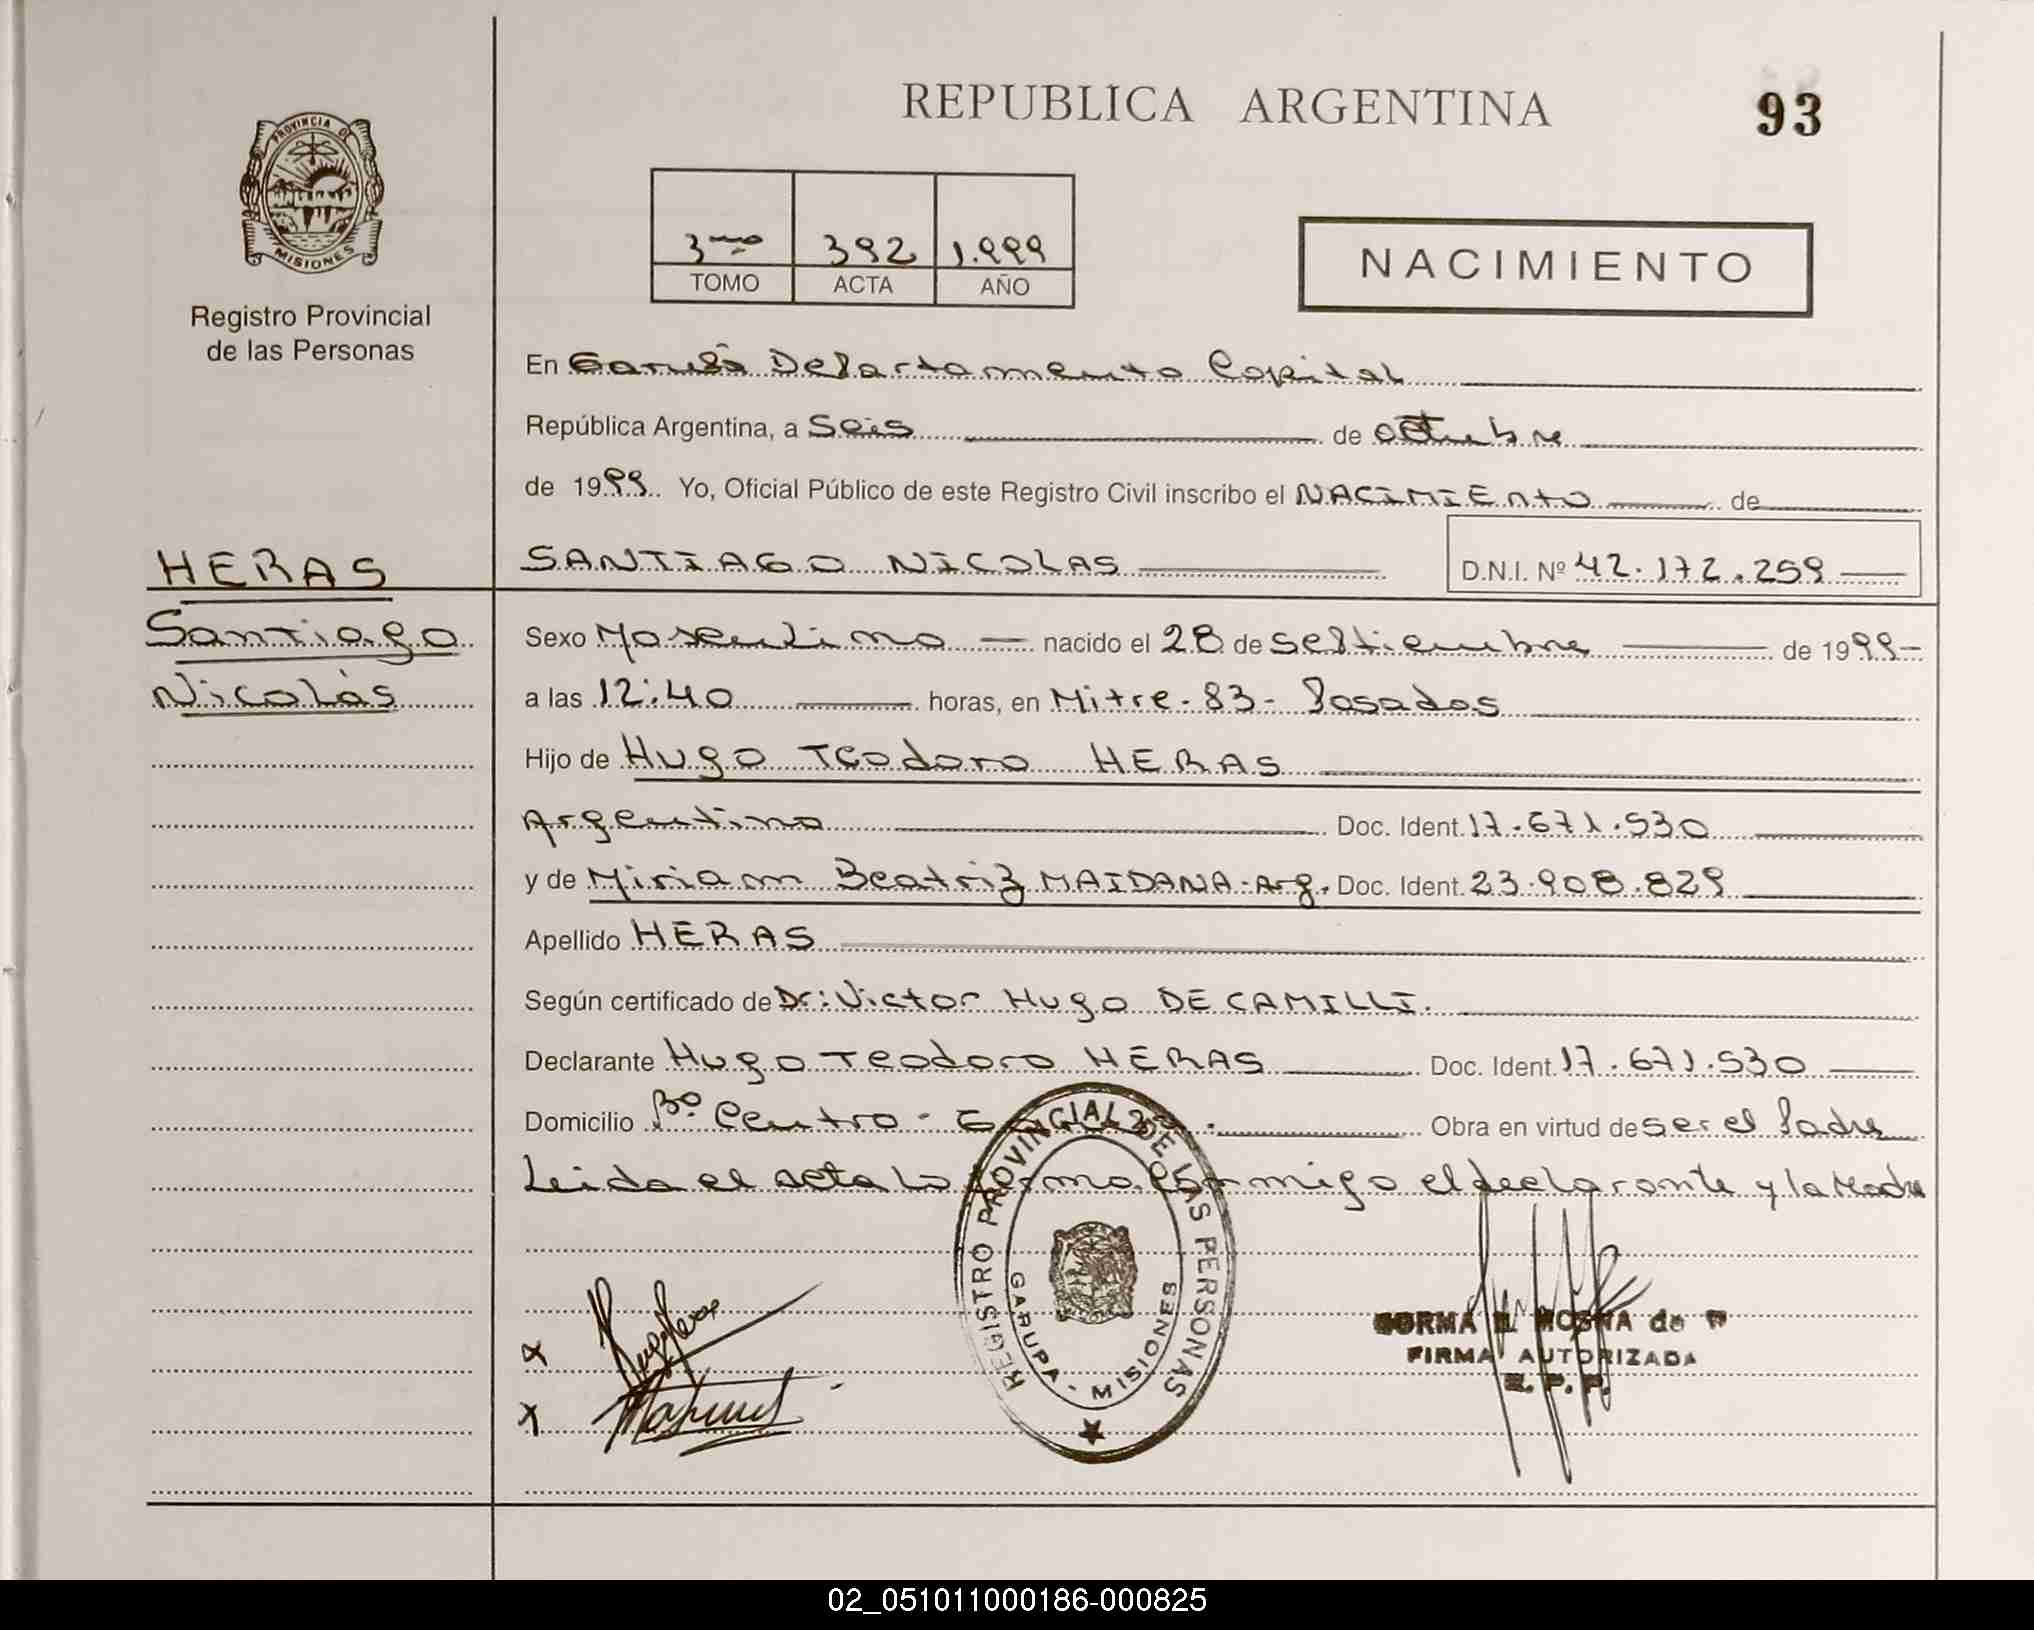 REPUBLICA ARGENTINA
93
PROVINCIA DE
MISIONES
Registro Provincial
de las Personas
3ro 392 1.999
TOMO ACTA AÑO
NACIMIENTO
En Garupá Departamento Capital
República Argentina, a Seis de octubre
de 1999. Yo, Oficial Público de este Registro Civil inscribo el NACIMIENTO de
HERAS
Santiago
Nicolás
SANTIAGO NICOLAS D.N.I. Nº 42.172.259
Sexo Masculino nacido el 28 de septiembre de 1999
a las 12:40 horas, en Mitre - 83 - Posadas
Hijo de Hugo Teodoro HERAS
Argentino Doc. Ident. 17.671.530
y de Miriam Beatriz MAIDANA - Arg. Doc. Ident. 23.908.829
Apellido HERAS
Según certificado de Dr: Victor Hugo DE CAMILLI.
Declarante Hugo Teodoro HERAS Doc. Ident. 17.671.530
Domicilio Bº Centro - Obra en virtud de ser el Padre
Leida el acta la firma conmigo el declarante y la Madre
REGISTRO PROVINCIAL DE LAS PERSONAS
GARUPA - MISIONES
x
x
NORMA MOSNA de
FIRMA AUTORIZADA
R. P. P.
02_051011000186-000825